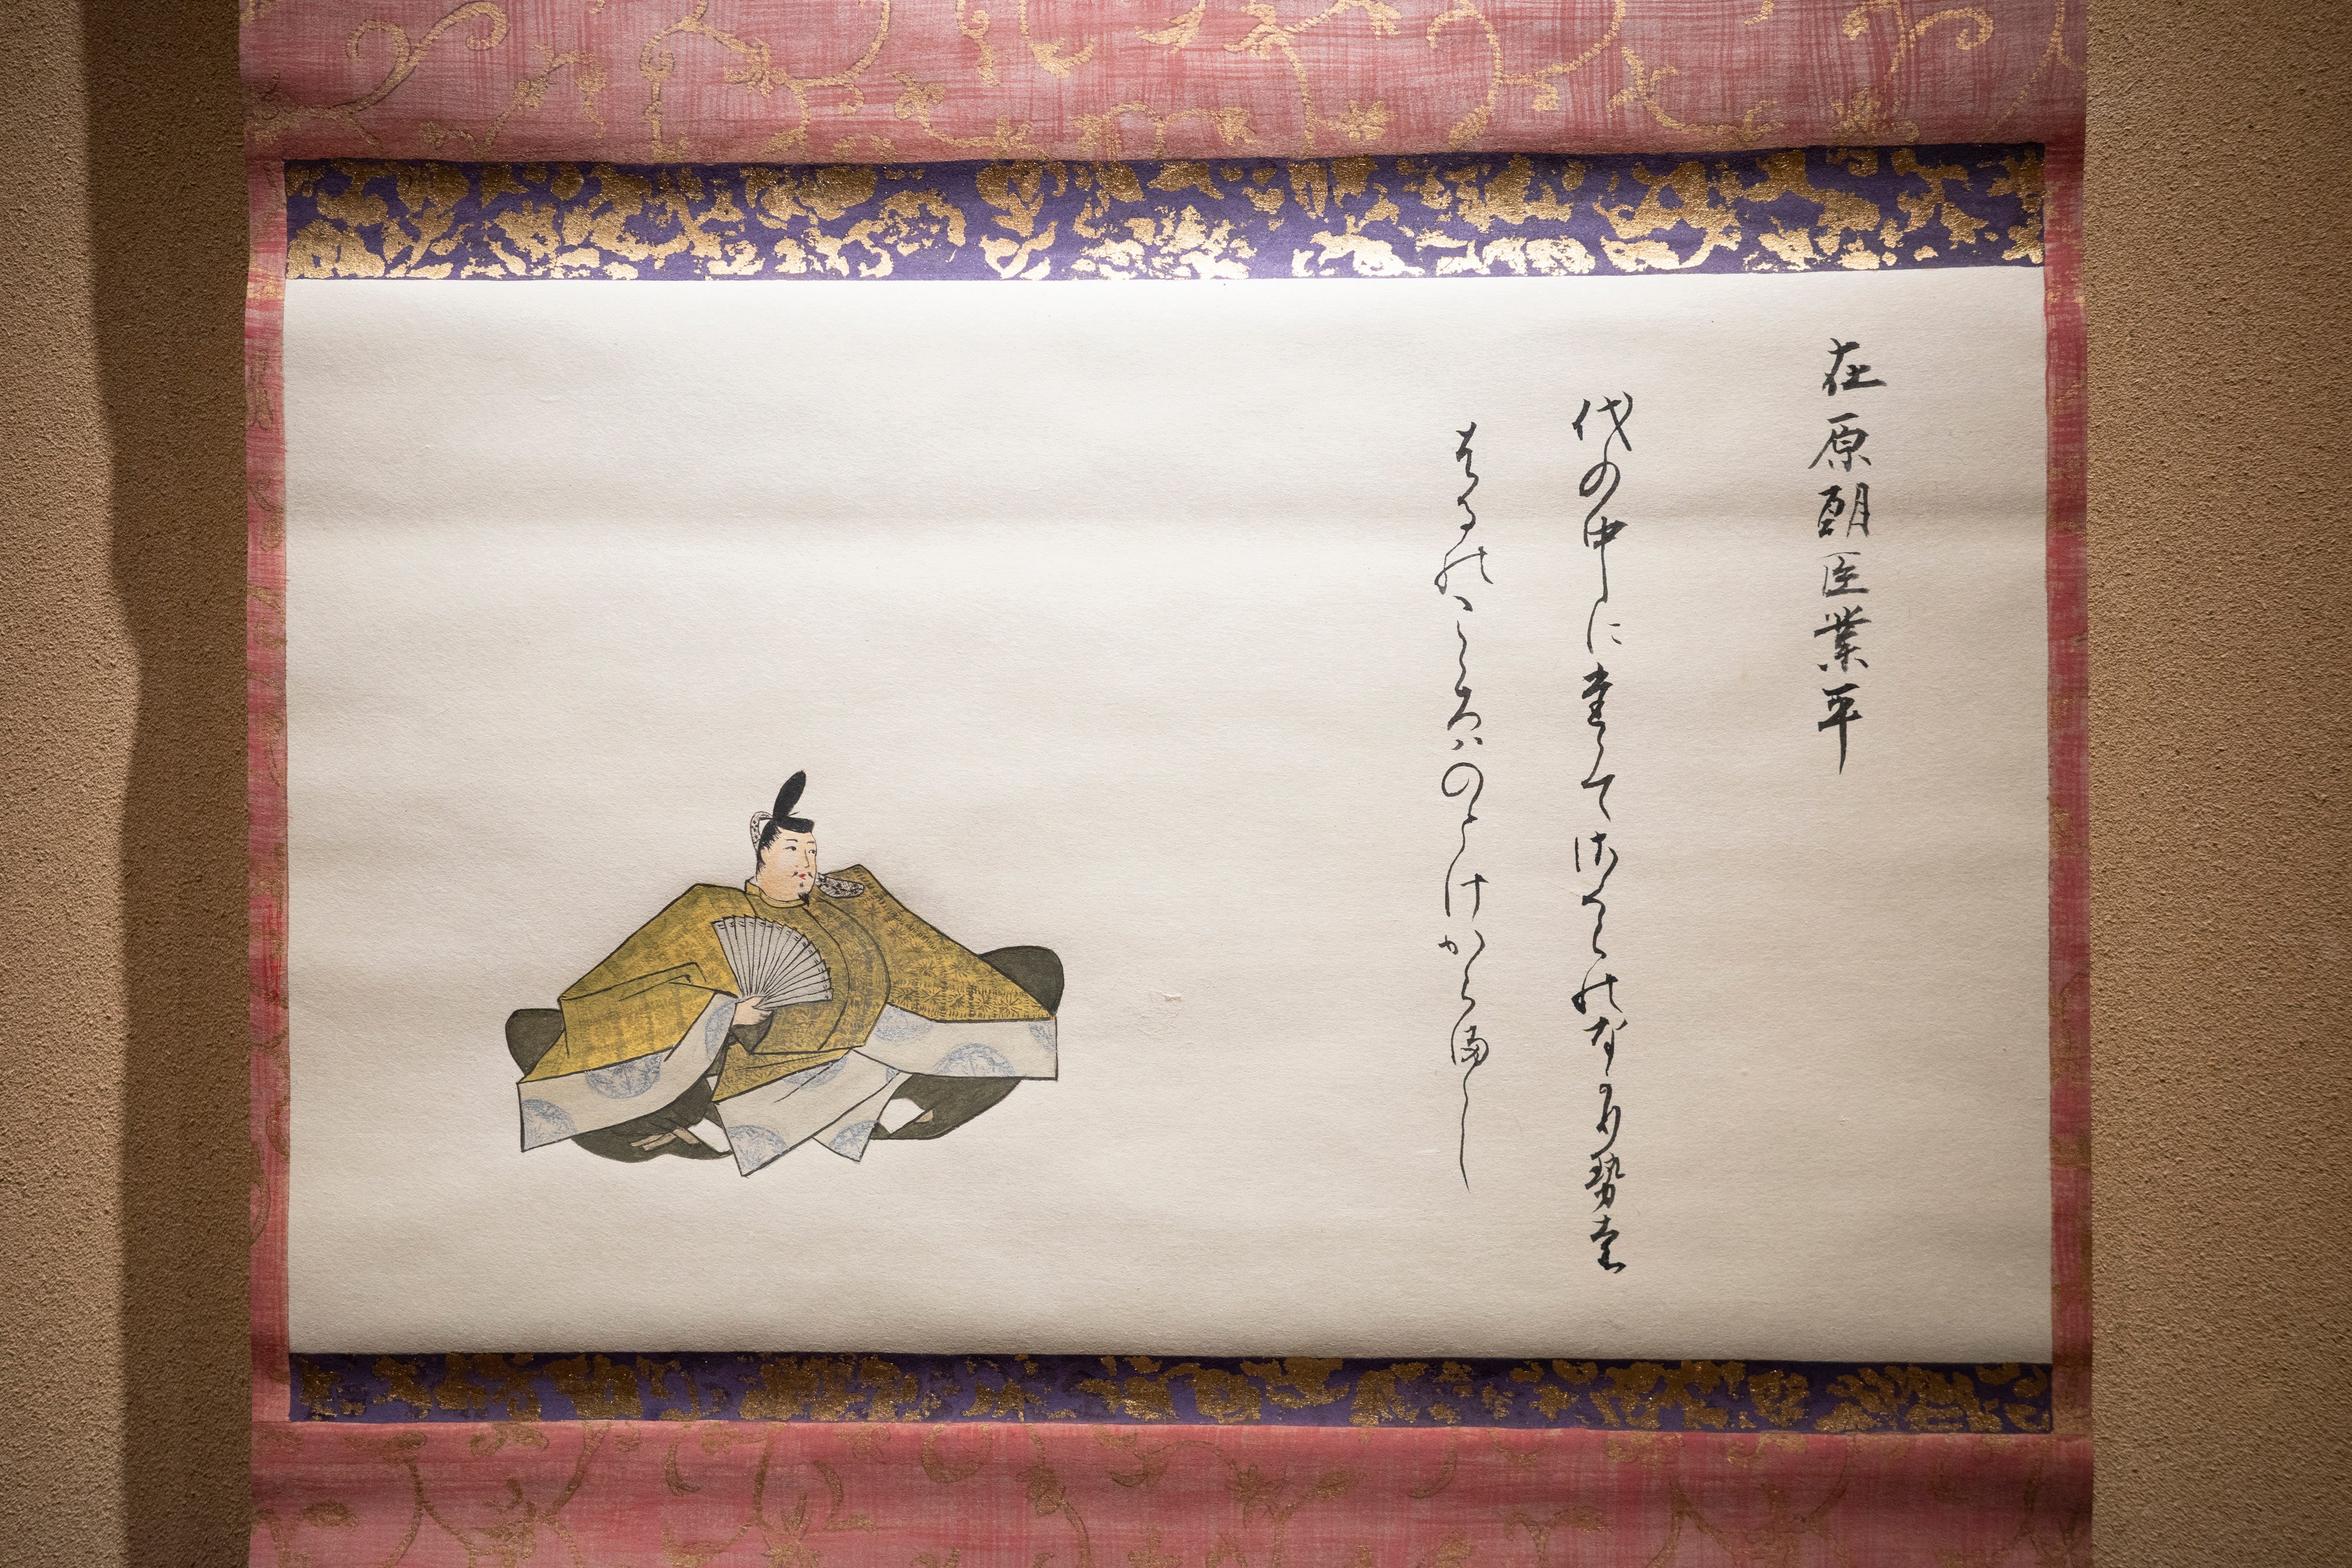 在原朝臣業平
代の中にたえてさくらのなかり勢は
はるのこゝろハのとけからまし